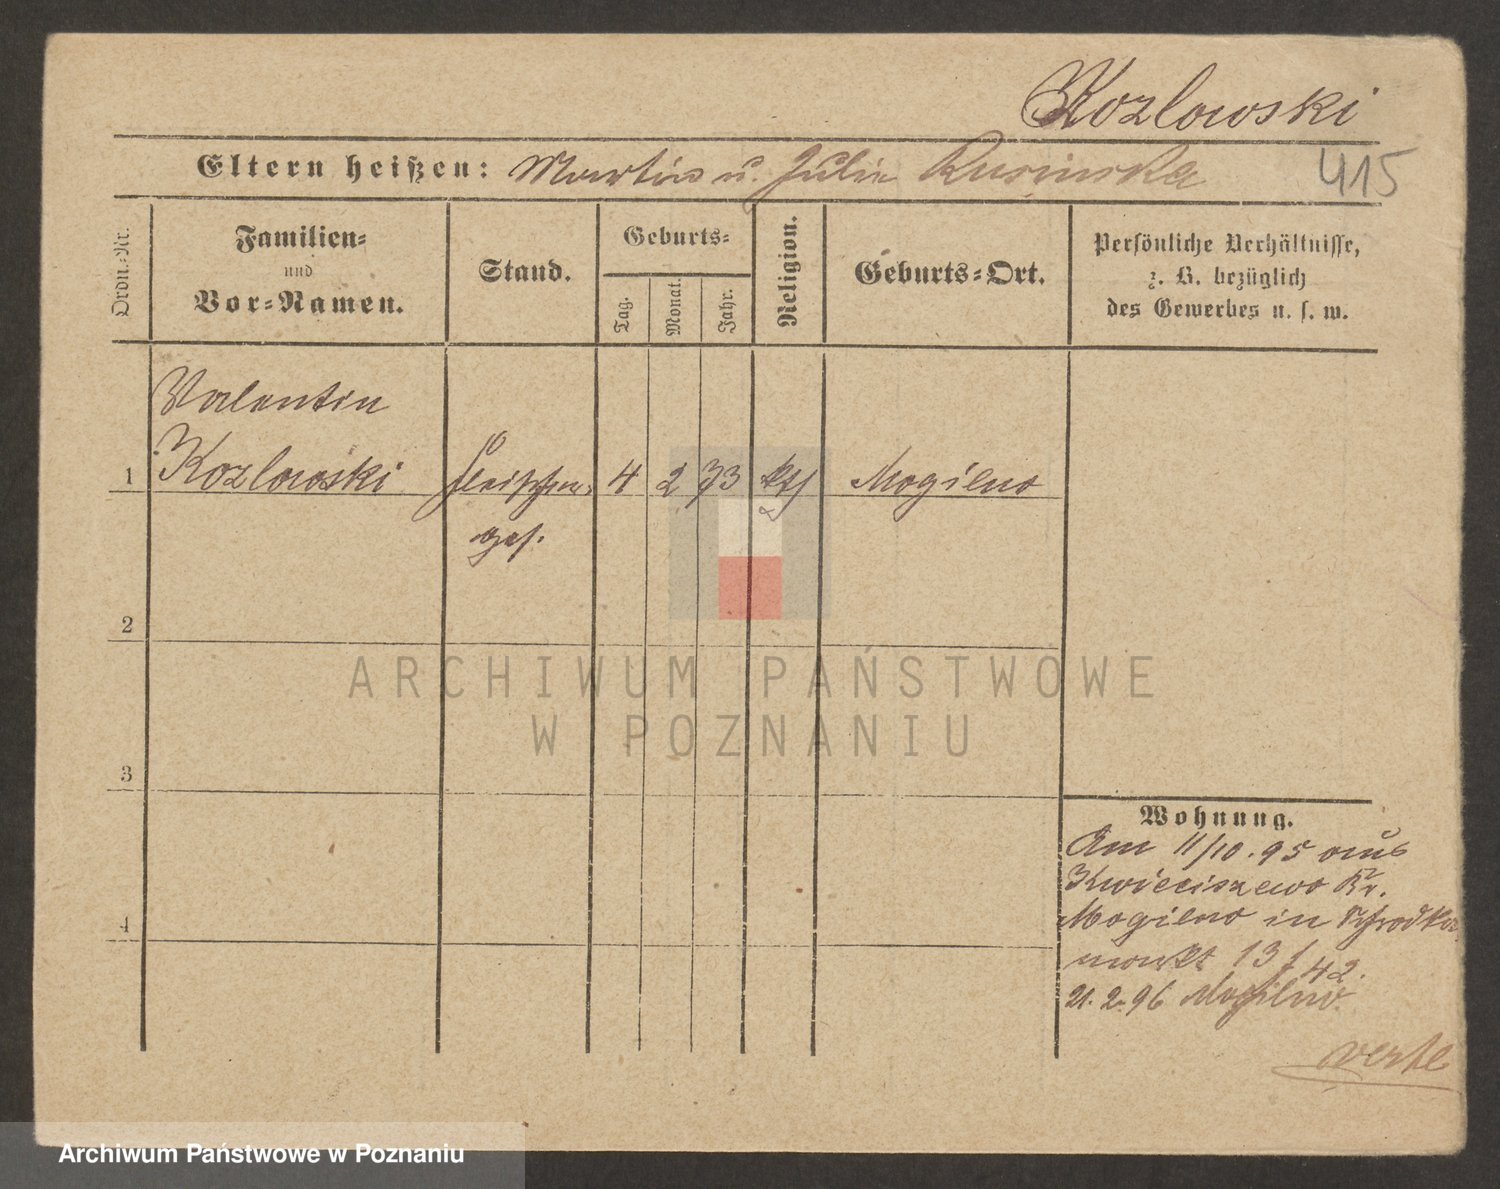 Kozlowski
Eltern heißen: Martin u. Julie Rusinska
415
Ordn.-Nr.
Familien-
und
Vor-Namen.
Stand.
Geburts-
Tag.
Monat.
Jahr.
Religion.
Geburts-Ort.
Persönliche Verhältnisse,
z. B. bezüglich
des Gewerbes u. s. w.
Valentin
1 Kozlowski Fleischer- 4 2 73 kth Mogilno
ges.
2
3
4
Wohnung.
Am 11/10.95 aus
Kwieciszewo Kr.
Mogilno in Schrodka
markt 13 f 42.
21.2.96 Mogilno.
verte
ARCHIWUM PAŃSTWOWE
W POZNANIU
Archiwum Państwowe w Poznaniu